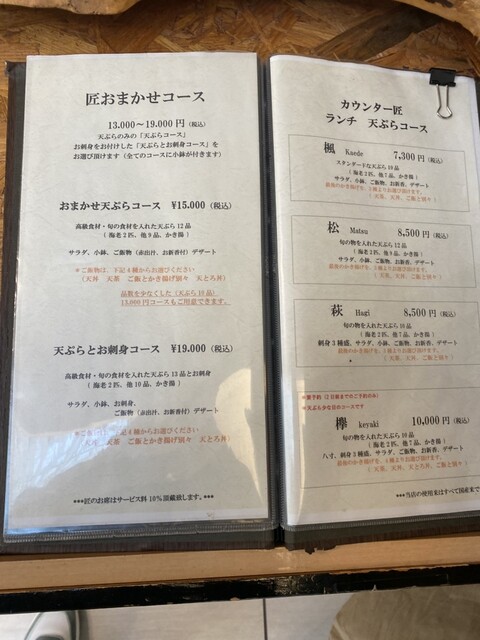 匠おまかせコース
13.000～19.000円(税込)
天ぷらのみの「天ぷらコース」
お刺身をお付けした「天ぷらとお刺身コース」を
お選び頂けます(全てのコースに小鉢が付きます)
おまかせ天ぷらコース ¥15.000(税込)
高級食材・旬の食材を入れた天ぷら12品
(海老2匹、他9品、かき揚)
サラダ、小鉢、ご飯物(赤出汁、お新香付)デザート
*ご飯物は、下記4種からお選びください
(天丼 天茶 ご飯とかき揚げ別々 天とろ丼)
品数を少なくした(天ぷら10品)
13,000円コースもご用意できます。
天ぷらとお刺身コース ¥19.000(税込)
高級食材・旬の食材を入れた天ぷら13品とお刺身
(海老2匹、他10品、かき揚)
サラダ、小鉢、お刺身、
ご飯物(赤出汁、お新香付)デザート
下記4種からお選びください
天茶 ご飯とかき揚げ別々 天とろ丼)
***匠のお席はサービス料10%頂戴致します。***
カウンター匠
ランチ 天ぷらコース
楓 Kaede 7,300円(税込)
スタンダードな天ぷら10品
(海老2匹、他7品、かき揚)
サラダ、小鉢、ご飯物、お新香、デザート
最後のかき揚を、3種よりお選び頂けます。
(天茶、天丼、ご飯と別々)
松 Matsu 8,500円(税込)
旬の物を入れた天ぷら12品
(海老2匹、他9品、かき揚)
サラダ、小鉢、ご飯物、お新香、デザート
最後のかき揚を、3種よりお選び頂けます。
(天茶、天丼、ご飯と別々)
萩 Hagi 8,500円(税込)
旬の物を入れた天ぷら10品
(海老2匹、他7品、かき揚)
刺身3種盛、サラダ、ご飯物、お新香、デザート
3種よりお選び頂けます。
(天茶、天丼、ご飯と別々)
*要予約(2日前までのご予約のみ)
*天ぷら少な目のコースです
欅 keyaki 10,000円(税込)
旬の物を入れた天ぷら10品
八寸、刺身3種盛、サラダ、ご飯物、お新香、デザート
最後のかき揚げを、4種よりお選び頂けます。
(天茶、天丼、天とろ丼、ご飯と別々)
***当店の使用米はすべて国産米で